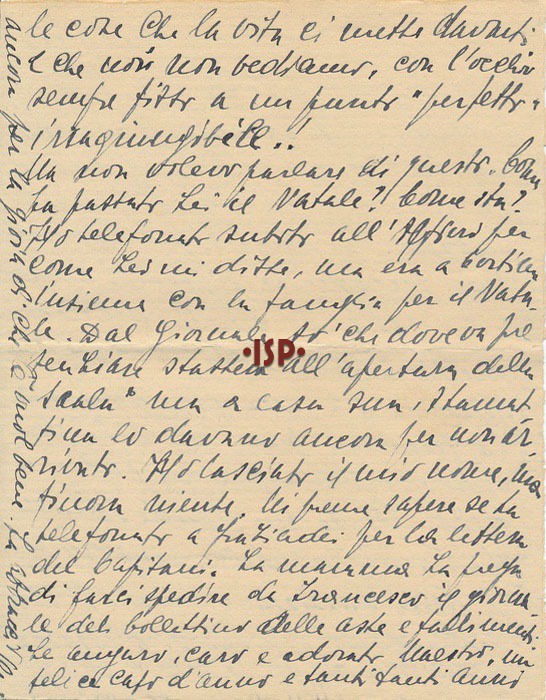 le cose che la vita ci mette davanti
e che noi non vediamo, con l'occhio
sempre fisso a un punto "perfetto"
irraggiungibile..!
Ma non volevo parlare di questo. Come
ha passato Lei il Natale? Come sta?
Ho telefonato subito all' per
come Lei mi disse, ma era a Cortina
insieme con la famiglia per il Nata-
le. Dal Giornale so' che doveva pre
senziare stasera all'apertura della
"Scala" ma a casa sua, stamat
tina lo davano ancora per non ar-
rivato. Ho lasciato il mio nome, ma
finora niente. Mi preme sapere se ha
telefonato a per la lettera
del Capitani. La mamma La prega
di farci spedire da Francesco il giorna
le del bollettino delle aste e fallimenti.
Le auguro, caro e adorato Maestro, un
felice capo d'anno e tanti tanti anni
ancora per la gioia di chi Le vuol bene. La
·ISP·